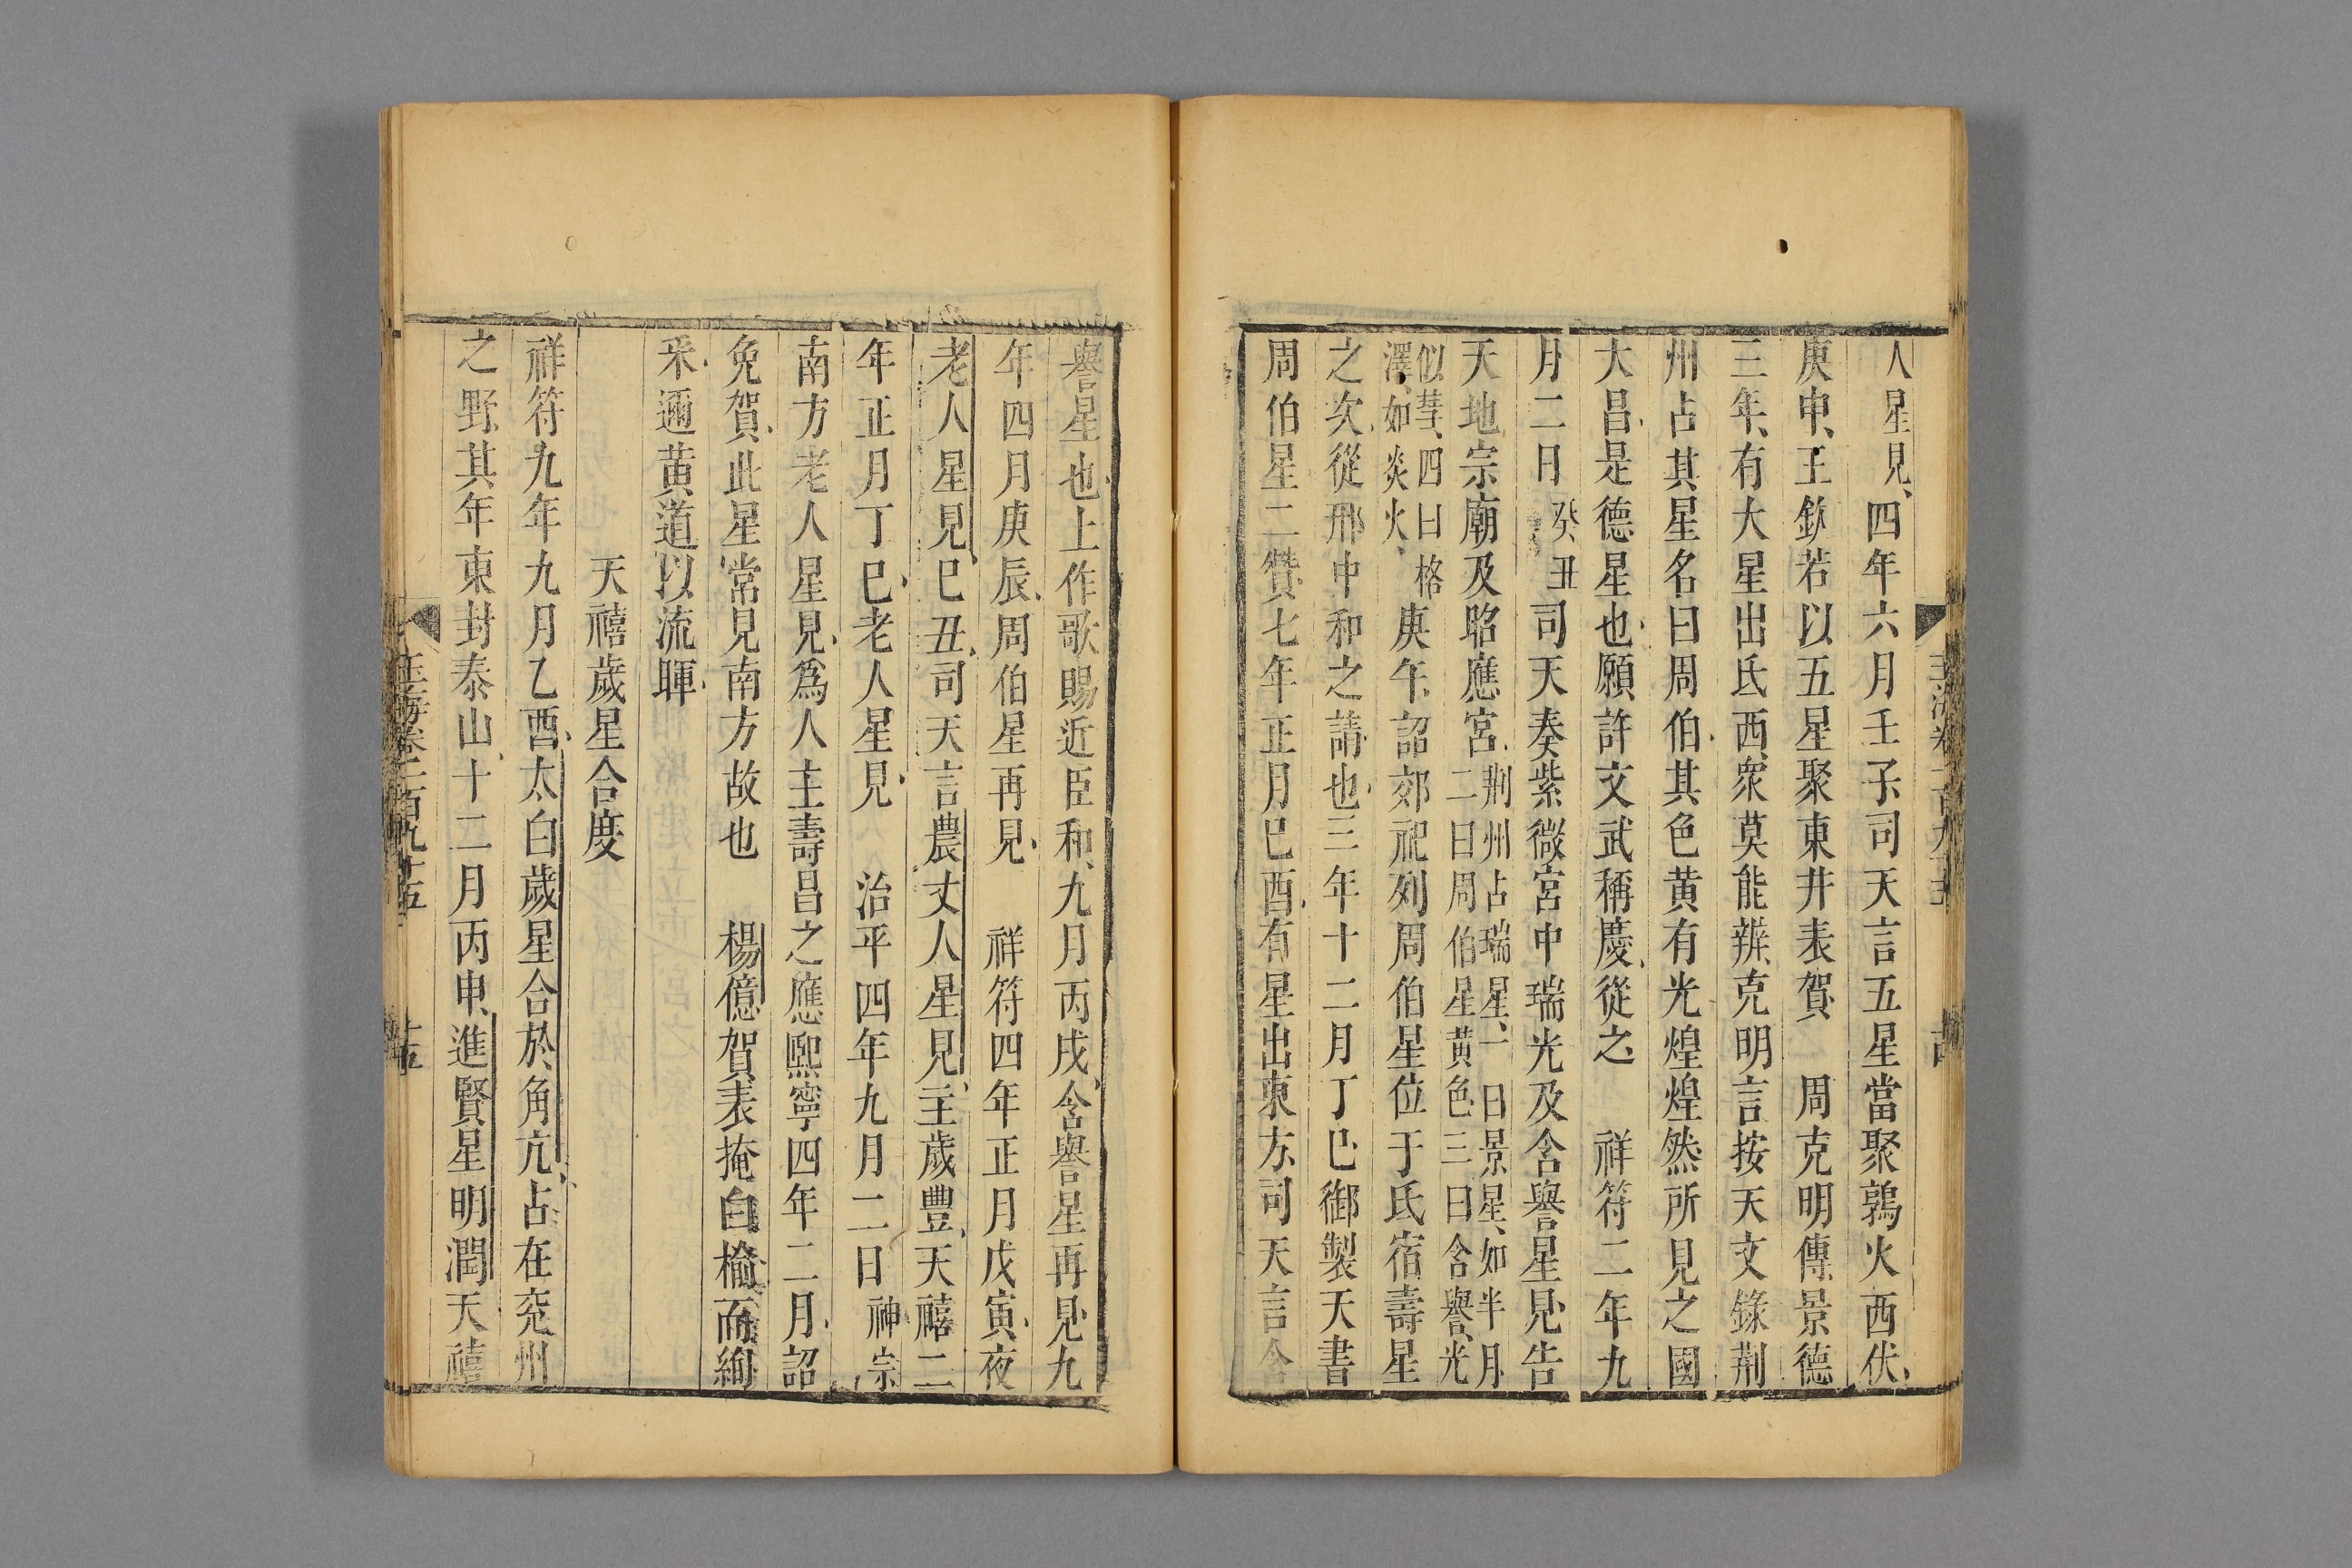 人星見四年六月壬子司天言五星當聚鶉火西伏
庚申王欽若以五星聚東井表賀　周克明傳景德
三年有大星出氐西衆莫能辨克明言按天文錄荆
州占其星名曰周伯其色黄有光煌煌然所見之國
大昌是德星也願許文武稱慶從之　祥符二年九
月二日癸丑司天奏紫微宮中瑞光及含譽星見告
天地宗廟及昭應宮荆州占瑞星一曰景星如半月二曰周伯星黃色三曰含譽光
似彗四曰格澤如炎火庚午詔郊祀列周伯星位于氐宿壽星
之次從邢中和之請也三年十二月丁巳御製天書
周伯星二贊七年正月巳酉有星出東方司天言含
譽星也上作歌賜近臣和九月丙戌含譽星再見九
年四月庚辰周伯星再見　祥符四年正月戊寅夜
老人星見巳丑司天言農丈人星見主歲豐天禧二
年正月丁巳老人星見　治平四年九月二日神宗
南方老人星見爲人主壽昌之應熙寧四年二月詔
免賀此星常見南方故也　楊億賀表掩白榆而絢
釆邇黄道以流暉
天禧歲星合度
祥符九年九月乙酉太白歲星合於角亢占在兖州
之野其年東封泰山十二月丙申進賢星明潤天禧
玉海卷一百九十五
十五